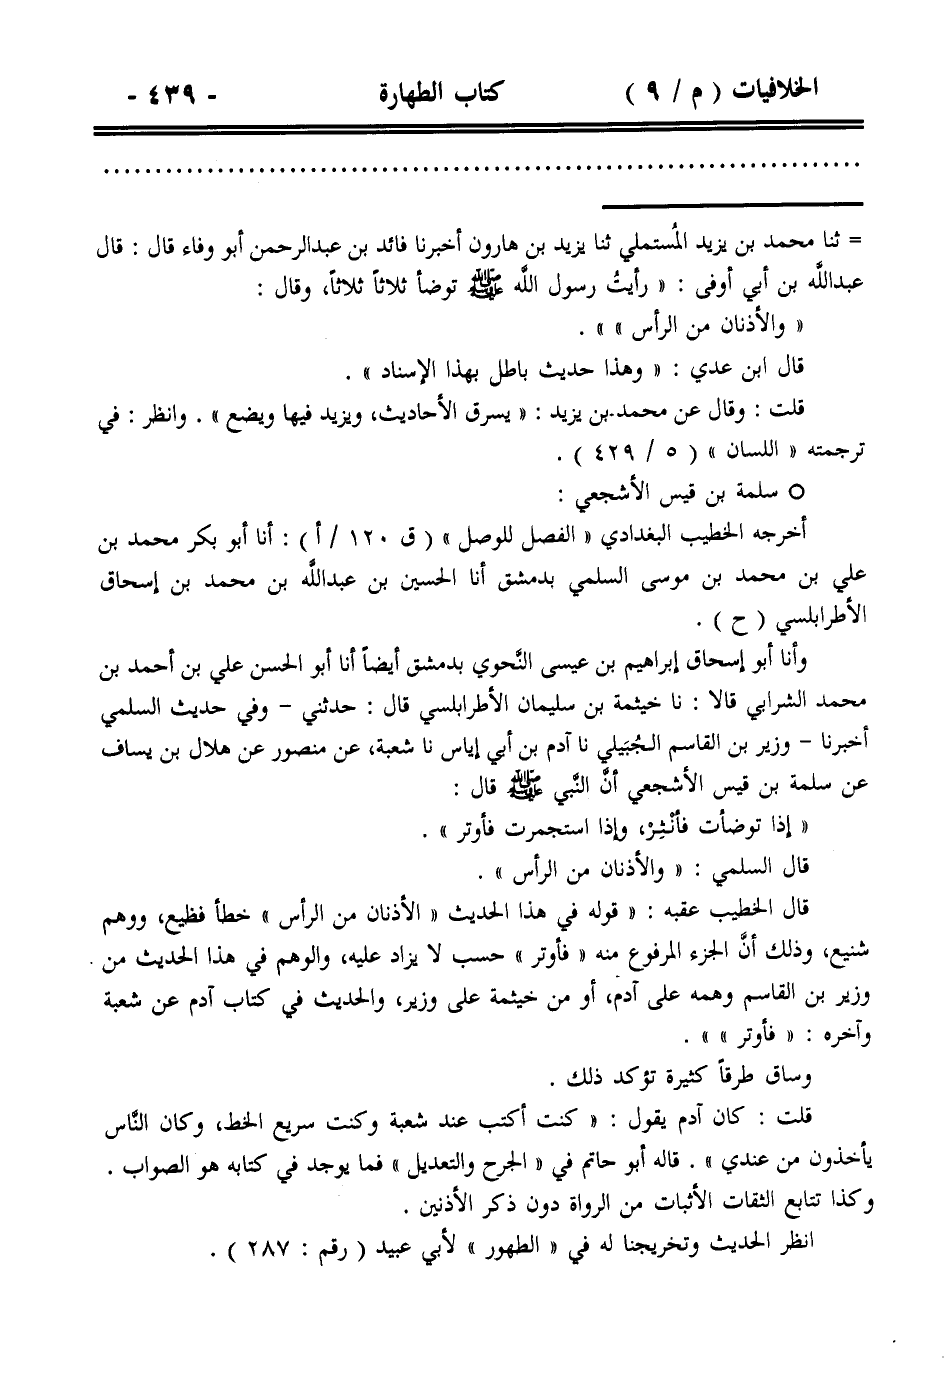 الخلافيات ( م / ٩ ) كتاب الطهارة - ٤٣٩ -
................................................................................
= ثنا محمد بن يزيد المُستملي ثنا يزيد بن هارون أخبرنا فائد بن عبدالرحمن أبو وفاء قال : قال
عبداللَّه بن أبي أوفى : « رأيتُ رسول اللَّه ﷺ توضأ ثلاثاً ثلاثاً، وقال :
« والأذنان من الرأس » » .
قال ابن عدي : « وهذا حديث باطل بهذا الإسناد » .
قلت : وقال عن محمد بن يزيد : « يسرق الأحاديث، ويزيد فيها ويضع » . وانظر : في
ترجمته « اللسان » ( ٥ / ٤٢٩ ) .
○ سلمة بن قيس الأشجعي :
أخرجه الخطيب البغدادي « الفصل للوصل » ( ق ١٢٠ / أ ) : أنا أبو بكر محمد بن
علي بن محمد بن موسى السلمي بدمشق أنا الحسين بن عبداللَّه بن محمد بن إسحاق
الأطرابلسي ( ح ) .
وأنا أبو إسحاق إبراهيم بن عيسى النَّحوي بدمشق أيضاً أنا أبو الحسن علي بن أحمد بن
محمد الشرابي قالا : نا خيثمة بن سليمان الأطرابلسي قال : حدثني – وفي حديث السلمي
أخبرنا – وزير بن القاسم الجُبَيلي نا آدم بن أبي إياس نا شعبة، عن منصور عن هلال بن يساف
عن سلمة بن قيس الأشجعي أنَّ النَّبي ﷺ قال :
« إذا توضأت فأنْثِرْ، وإذا استجمرت فأوتر » .
قال السلمي : « والأذنان من الرأس » .
قال الخطيب عقبه : « قوله في هذا الحديث « الأذنان من الرأس » خطأ فظيع، ووهم
شنيع، وذلك أنَّ الجزء المرفوع منه « فأوتر » حسب لا يزاد عليه، والوهم في هذا الحديث من
وزير بن القاسم وهمه على آدم، أو من خيثمة على وزير، والحديث في كتاب آدم عن شعبة
وآخره : « فأوتر » » .
وساق طرقاً كثيرة تؤكد ذلك .
قلت : كان آدم يقول : « كنت أكتب عند شعبة وكنت سريع الخط، وكان النَّاس
يأخذون من عندي » . قاله أبو حاتم في « الجرح والتعديل » فما يوجد في كتابه هو الصواب .
وكذا تتابع الثقات الأثبات من الرواة دون ذكر الأذنين .
انظر الحديث وتخريجنا له في « الطهور » لأبي عبيد ( رقم : ٢٨٧ ) .